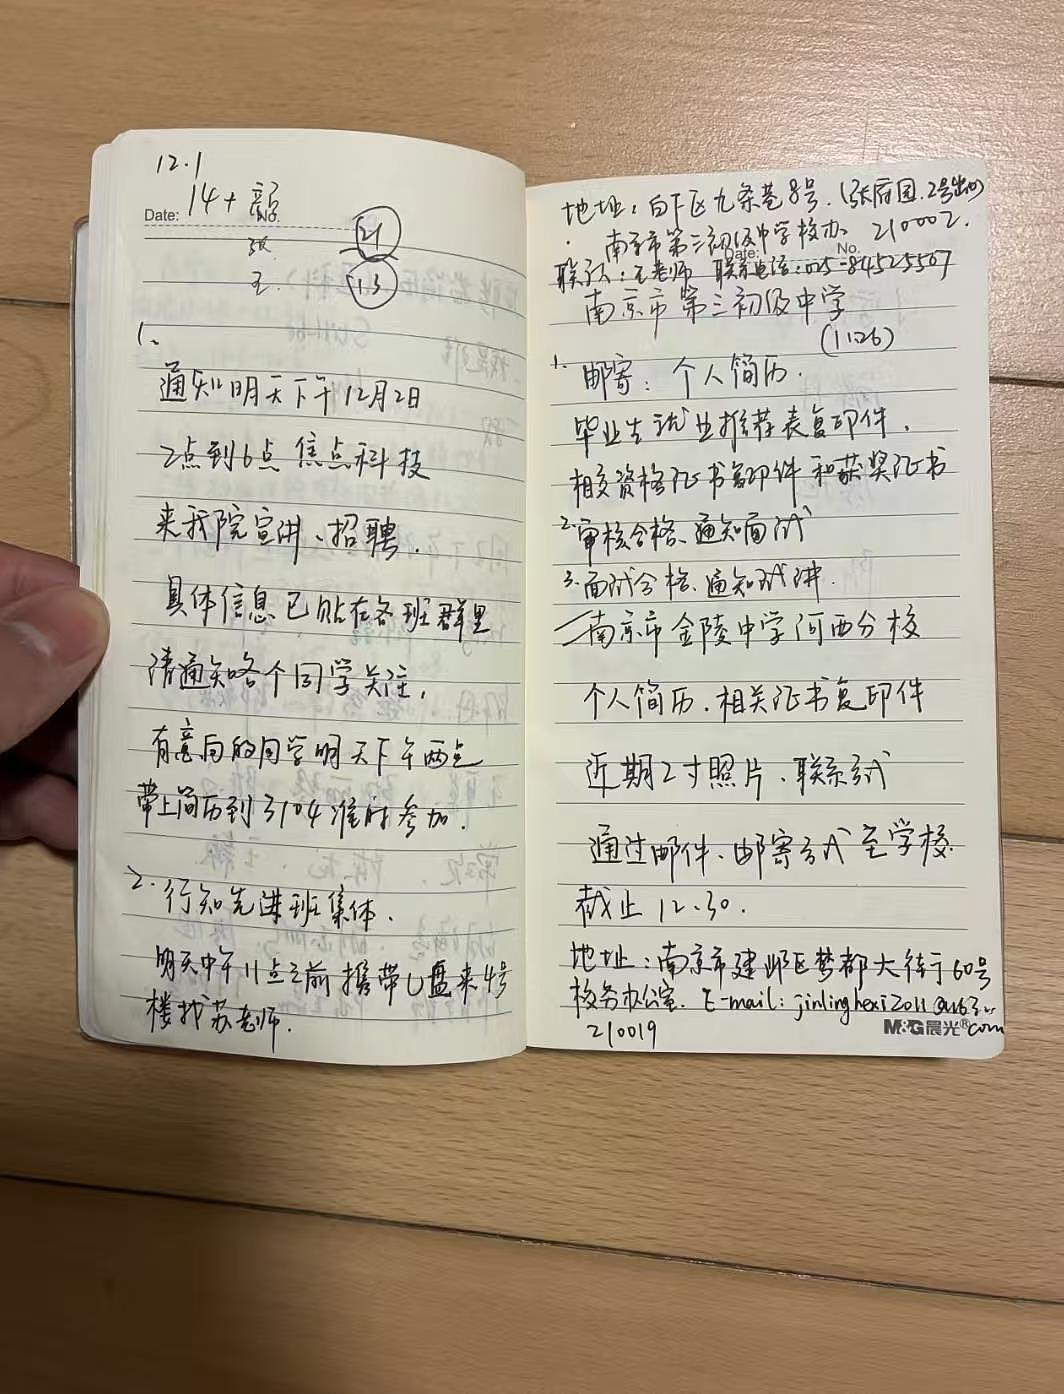 12.1
14+
Date:
No.
张
21
王
13
1、
通知明天下午12月2日
2点到6点 焦点科技
来我院宣讲、招聘.
具体信息已贴在各班群里
请通知各个同学关注,
有意向的同学明天下午两点
带上简历到3104准时参加.
2. 行知先进班集体.
明天中午11点之前携带U盘来4号
楼找苏老师.
地址:白下区九条巷8号.(张府园.2号出口)
南京市第三初级中学校办. 210002.
Date:
No.
联系人:王老师 联系电话:025-84525507
南京市第三初级中学
(1126)
1. 邮寄:个人简历.
毕业生就业推荐表复印件.
相关资格证书复印件和获奖证书
2.审核合格、通知面试
3.面试合格、通知试讲.
南京市金陵中学河西分校
个人简历.相关证书复印件
近期2寸照片.联系方式
通过邮件、邮寄方式至学校
截止12.30.
地址:南京市建邺区梦都大街60号
校务办公室. E-mail:jinlinghexi2011@163.
com
210019
M&G晨光®